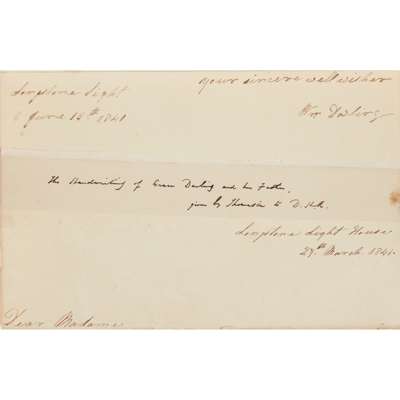 your sincere well wisher
Longstone Light
June 14th 1841
Wm Darling
The Handwriting of Grace Darling and her Father,
given by to D.
Longstone Light House
29th March 1841.
Dear Madame